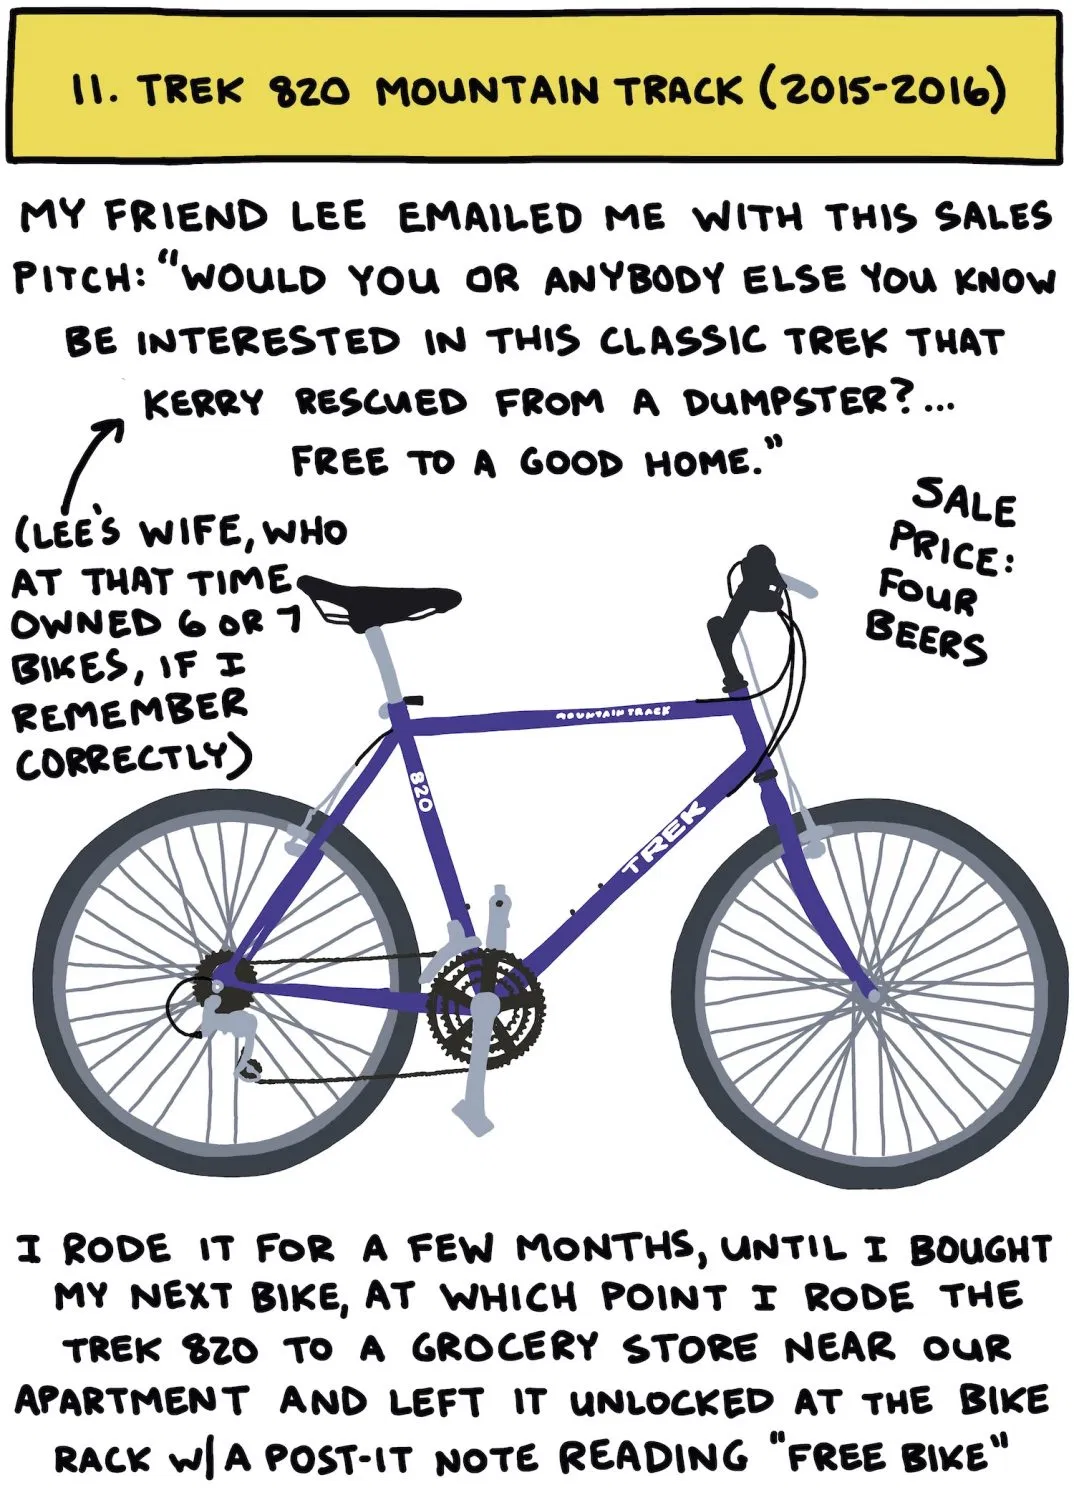 11. TREK 820 MOUNTAIN TRACK (2015-2016)
MY FRIEND LEE EMAILED ME WITH THIS SALES
PITCH: "WOULD YOU OR ANYBODY ELSE YOU KNOW
BE INTERESTED IN THIS CLASSIC TREK THAT
KERRY RESCUED FROM A DUMPSTER?...
FREE TO A GOOD HOME."
(LEE'S WIFE, WHO
AT THAT TIME
OWNED 6 OR 7
BIKES, IF I
REMEMBER
CORRECTLY)
SALE
PRICE:
FOUR
BEERS
MOUNTAIN TRACK
820
TREK
I RODE IT FOR A FEW MONTHS, UNTIL I BOUGHT
MY NEXT BIKE, AT WHICH POINT I RODE THE
TREK 820 TO A GROCERY STORE NEAR OUR
APARTMENT AND LEFT IT UNLOCKED AT THE BIKE
RACK W/ A POST-IT NOTE READING "FREE BIKE"